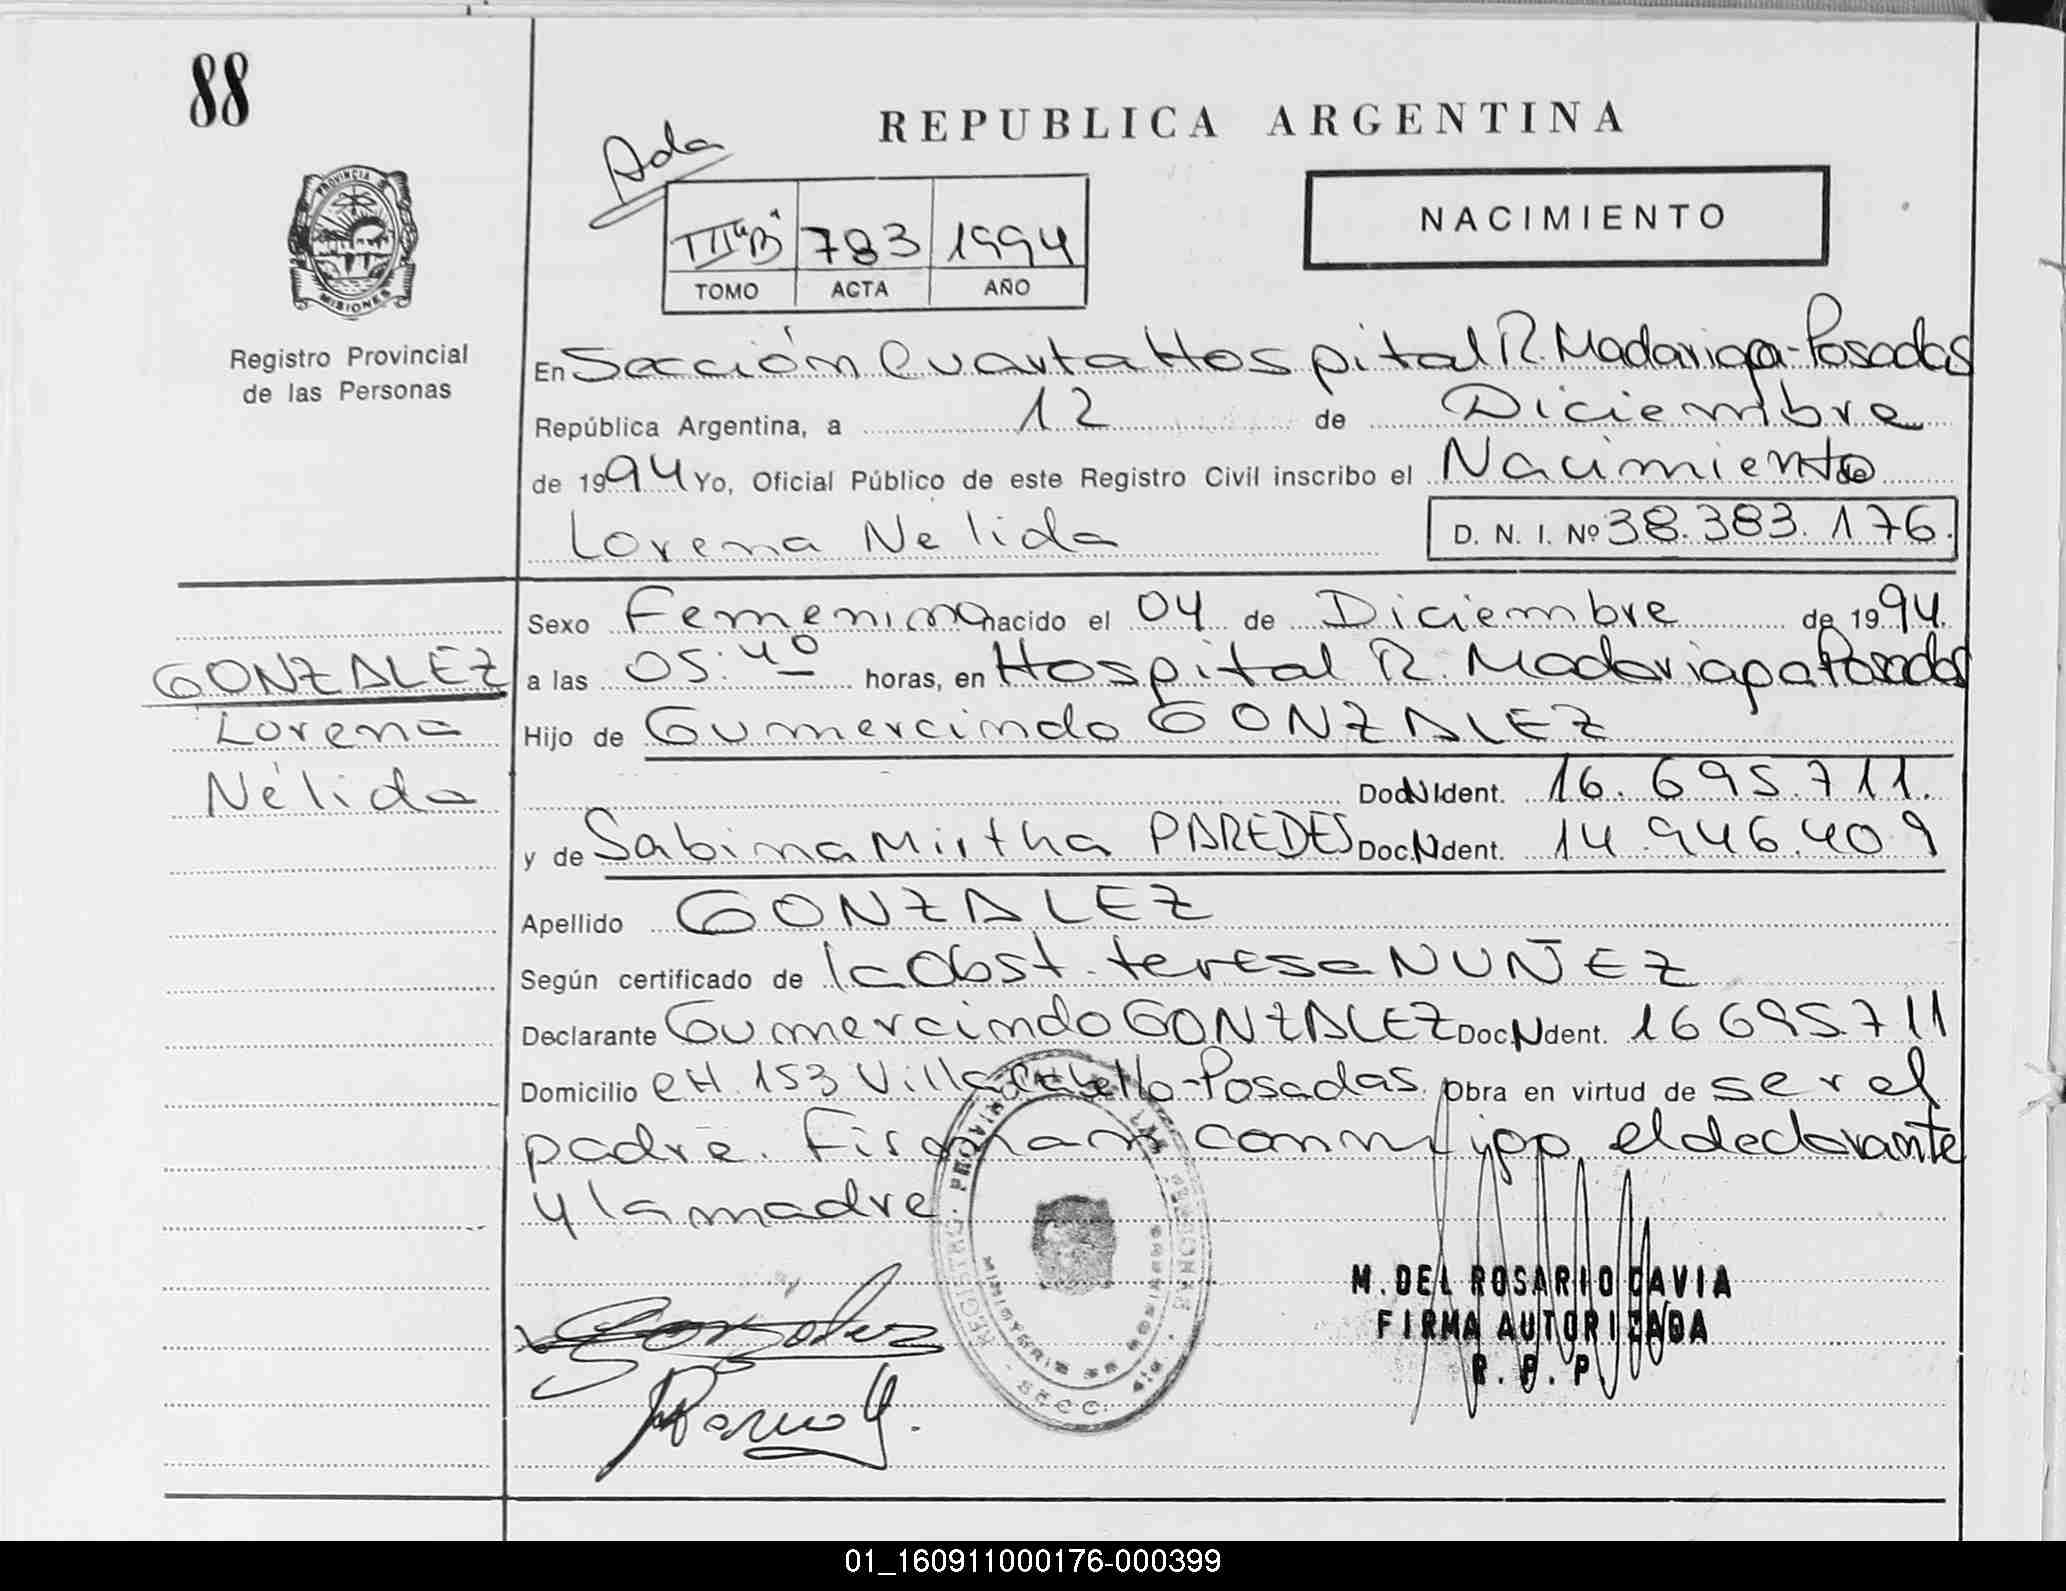 88
REPUBLICA ARGENTINA
Ada
NACIMIENTO
PROVINCIA
MISIONES
Registro Provincial
de las Personas
IIIº"B" 783 1994
TOMO ACTA AÑO
En Sección Cuarta Hospital R. Madariaga-Posadas
República Argentina, a 12 de Diciembre
de 1994 Yo, Oficial Público de este Registro Civil inscribo el Nacimiento de
Lorena Nélida D. N. I. Nº 38.383.176.
GONZALEZ
Lorena
Nélida
Sexo Femenino nacido el 04 de Diciembre de 1994.
a las 05:40 horas, en Hospital R. Madariaga Posadas
Hijo de Gumercindo GONZALEZ
Doc.N.Ident. 16.695.711.
y de Sabina Mirtha PAREDES Doc.N.Ident. 14.946.409
Apellido GONZALEZ
Según certificado de la Obst. teresa NUÑEZ
Declarante Gumercindo GONZALEZ Doc.N.Ident. 16 695.711
Domicilio CH 153 Villa Cabello-Posadas. Obra en virtud de ser el
padre. Firman conmigo, el declarante
y la madre
REGISTRO PROVINCIAL DE LAS PERSONAS
MINISTERIO DE GOBIERNO
SECC. 4ta
Gonzalez
M. DEL ROSARIO CAVIA
FIRMA AUTORIZADA
R. P. P.
01_160911000176-000399